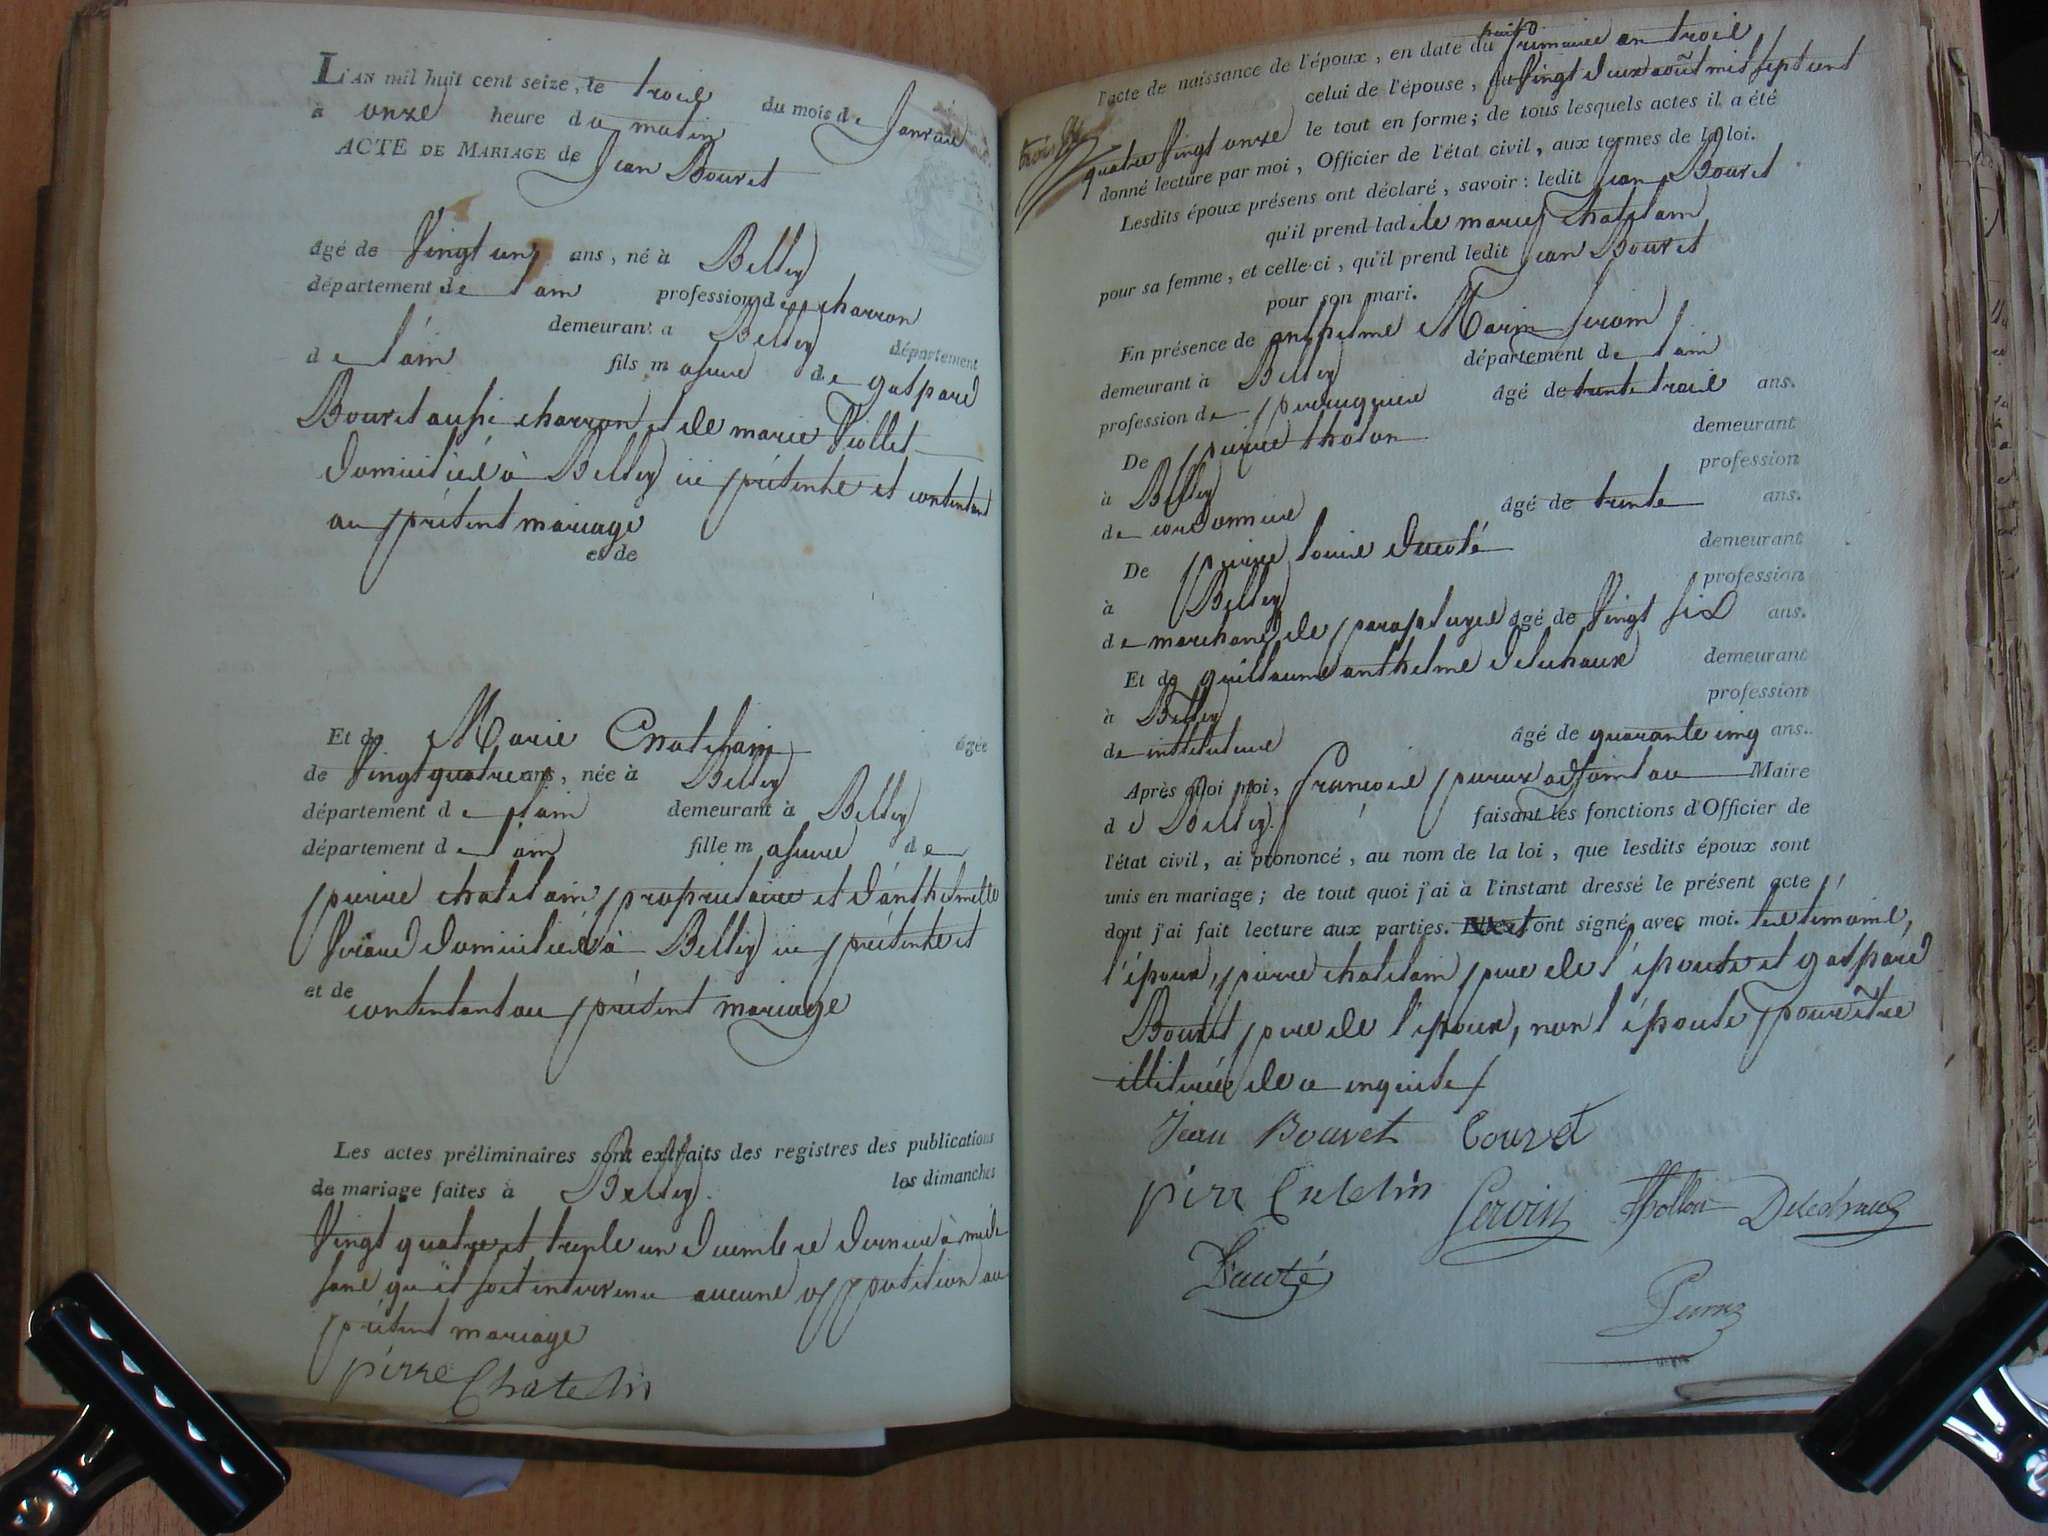 L'AN mil huit cent seize, le trois du mois de Janvier
à onze heure du matin
ACTE DE MARIAGE de Jean Bouvet
âgé de Vingt un ans, né à Belley
département de l'ain profession de charron
demeurant a Belley département
de l'ain fils majeur de gaspard
Bouvet aussi charron et de marie Viollet
domiciliés à Belley ici présents et consentant
au présent mariage
et de
Et de Marie Chatelain âgée
de Vingt quatre ans, née à Belley
département de l'ain demeurant à Belley
département de l'ain fille majeure de
pierre chatelain propriétaire et d'anthelmette
domiciliés à Belley ici présents et
et de consentant au présent mariage
Les actes préliminaires sont extraits des registres des publications
de mariage faites à Belley. les dimanches
Vingt quatre et trente un decembre dernier à midi
sans qu'il soit intervenu aucune opposition au
présent mariage
pirre Chatelin
l'acte de naissance de l'époux, en date du huit frimaire an trois
celui de l'épouse, du Vingt deux août mil sept cent
quatre Vingt onze le tout en forme; de tous lesquels actes il a été
donné lecture par moi, Officier de l'état civil, aux termes de la loi.
Lesdits époux présens ont déclaré, savoir: ledit Jean Bouvet
qu'il prend ladite marie Chatelain
pour sa femme, et celle-ci, qu'il prend ledit Jean Bouvet
pour son mari.
En présence de anthelme Marin Servoin
demeurant à Belley département de l'ain
profession de perruquier âgé de trente trois ans.
De pierre tholon demeurant
à Belley profession
de cordonnier âgé de trente ans.
De pierre louis ducoté demeurant
à Belley profession
de marchand de parapluyes âgé de Vingt six ans.
Et de guillaume anthelme delechaux demeurant
à Belley profession
de instituteur âgé de quarante cinq ans.
Après quoi moi, françois peruz adjoint au Maire
de Belley. faisant les fonctions d'Officier de
l'état civil, ai prononcé, au nom de la loi, que lesdits époux sont
unis en mariage; de tout quoi j'ai à l'instant dressé le présent acte
dont j'ai fait lecture aux parties. ont signé avec moi. les témoins,
l'époux, pierre chatelain père de l'épouse et gaspard
Bouvet père de l'époux, non l'épouse pour être
illitérée de ce enquise
Jean Bouvet Bouvet
pirr Chatelin Servoin Thollon Delechaux
Ducoté
Peruz